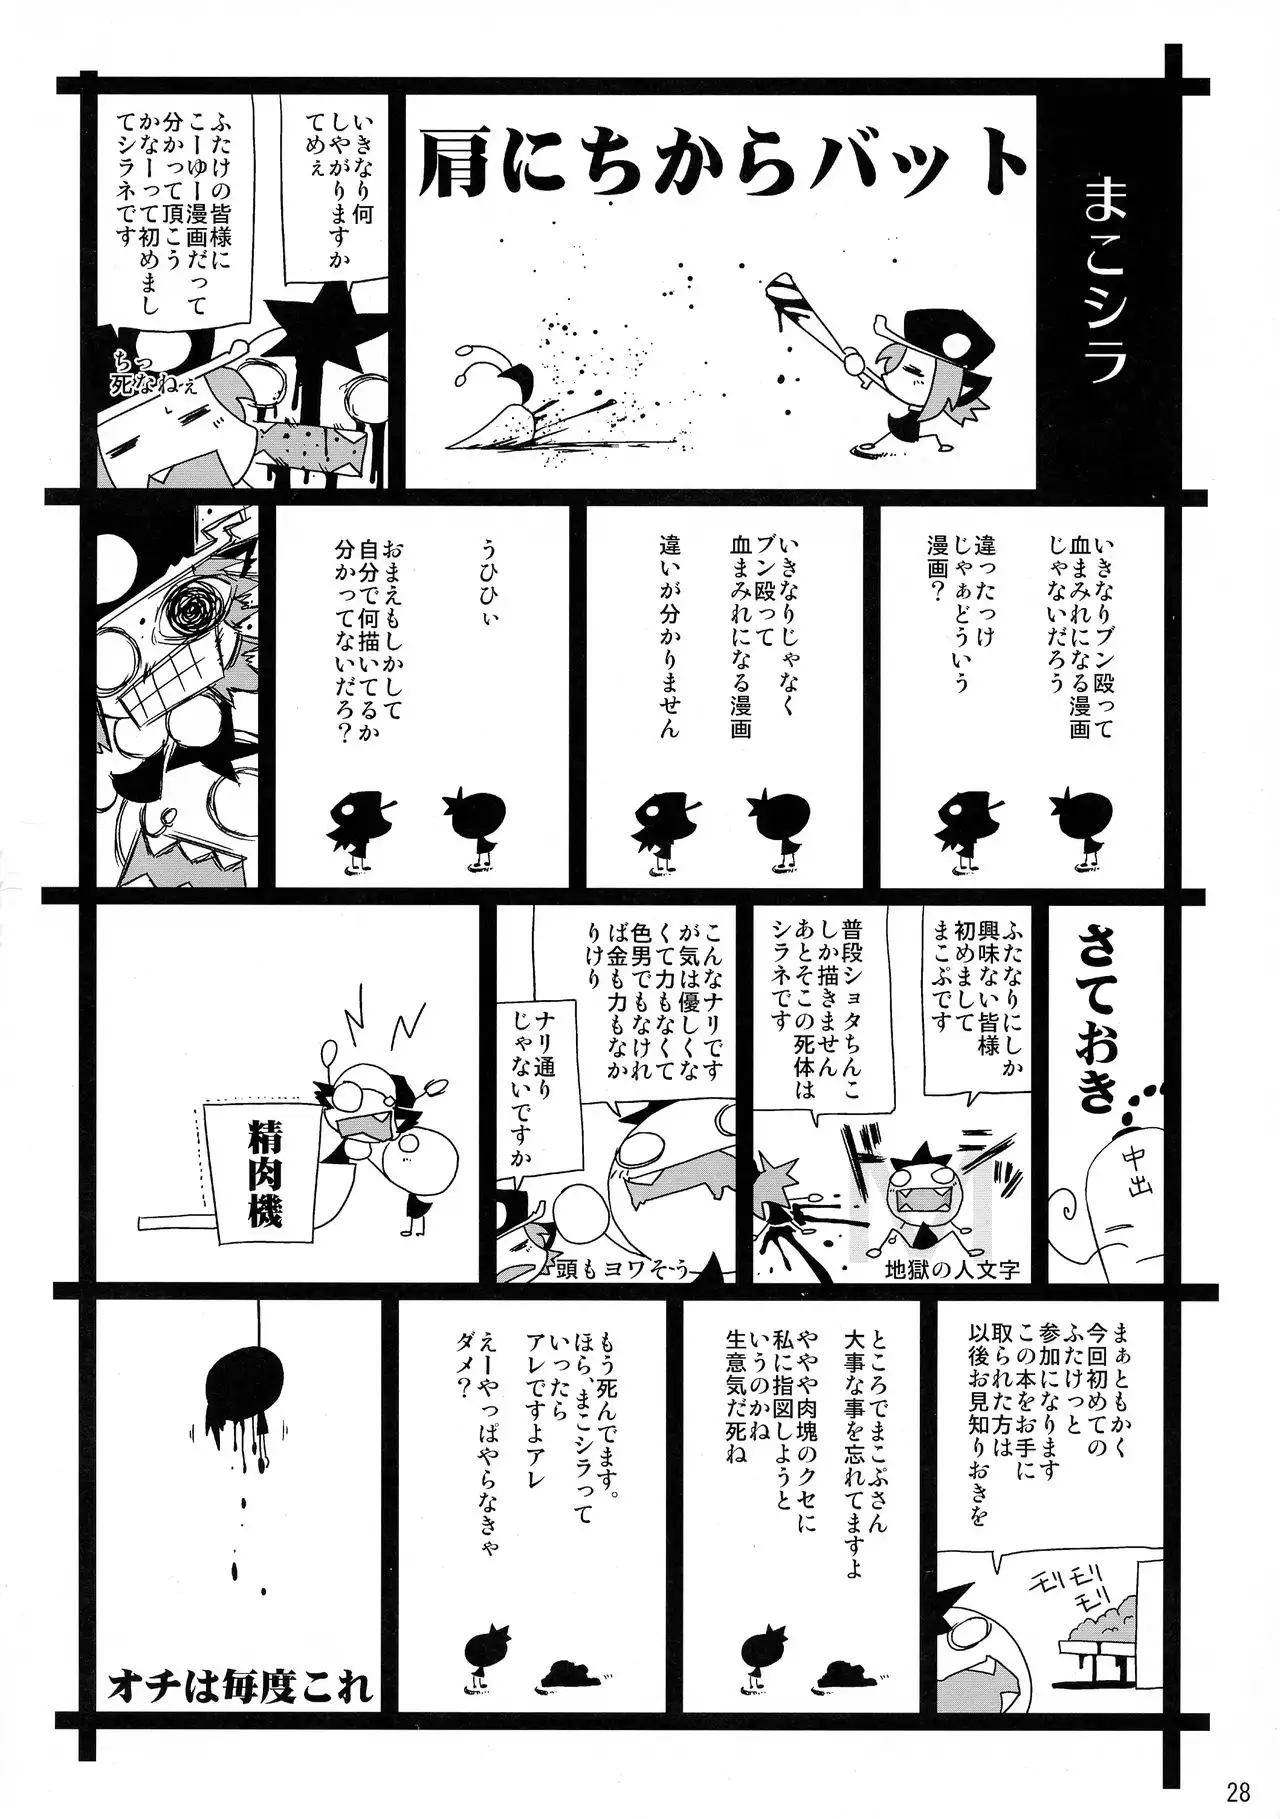 まこシラ
肩にちからバット
いきなり何
しやがりますか
てめぇ
ふたけの皆様に
こーゆー漫画だって
分かって頂こう
かなーって初めまし
てシラネです
ちっ
死なねぇ
いきなりブン殴って
血まみれになる漫画
じゃないだろう
違ったっけ
じゃぁどういう
漫画？
いきなりじゃなく
ブン殴って
血まみれになる漫画
違いが分かりません
うひひぃ
おまえもしかして
自分で何描いてるか
分かってないだろ？
さておき
中出
ふたなりにしか
興味ない皆様
初めまして
まこぷです
ドドーニ
M
地獄の人文字
普段ショタちんこ
しか描きません
あとそこの死体は
シラネです
こんなナリです
が気は優しくな
くて力もなくて
色男でもなけれ
ば金も力もなか
りけり
ナリ通り
じゃないですか
頭もヨワそう
精肉機
まぁともかく
今回初めての
ふたけっと
参加になります
この本をお手に
取られた方は
以後お見知りおきを
モリモリモリ
ところでまこぷさん
大事な事を忘れてますよ
ややや肉塊のクセに
私に指図しようと
いうのかね
生意気だ死ね
もう死んでます。
ほら、まこシラって
いったら
アレですよアレ
えーやっぱやらなきゃ
ダメ？
オチは毎度これ
28